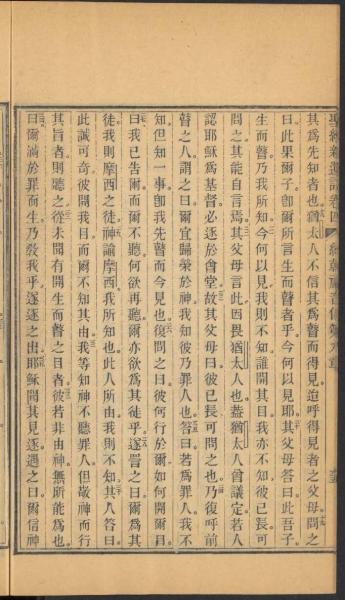 聖經新遺詔卷四 約翰福音傳第九章
其爲先知者也猶太人不信其爲瞽而得見迨呼得見者之父母問之
曰此果爾子卽爾所言生而瞽者乎今何以見耶其父母答曰此吾子
生而瞽乃我所知今何以見我則不知誰開其目我亦不知彼已長可
問之其能自言焉其父母言此因畏猶太人也蓋猶太人曾議定若人
認耶穌爲基督必逐於會堂故其父母曰彼已長可問之也乃復呼前
瞽之人謂之曰爾宜歸榮於神我知彼乃罪人也答曰若爲罪人我不
知但知一事卽我先瞽而今見也復問之曰彼何行於爾如何開爾目
曰我已告爾而爾不聽何欲再聽爾亦欲爲其徒乎遂詈之曰爾爲其
徒我摩西之徒神諭摩西我所知也此人所由我則不知其人答曰
此誠可奇彼開我目而爾不知其由我等知神不聽罪人但敬神而行
其旨者則聽之從未聞有開生而瞽之目者彼若非由神無所能爲也
曰爾滿於罪而生乃敎我乎遂逐之出耶穌聞其見逐遇之曰爾信神